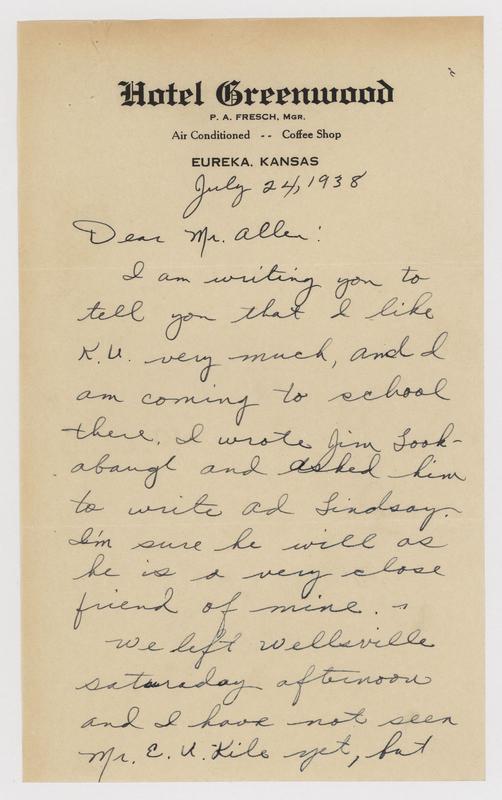 Hotel Greenwood
P. A. FRESCH, MGR.
Air Conditioned -- Coffee Shop
EUREKA, KANSAS
July 24, 1938
Dear Mr. Allen:
I am writing you to
tell you that I like
K.U. very much, and I
am coming to school
there. I wrote Jim Look-
abaugh and asked him
to write Ad Lindsay.
I'm sure he will as
he is a very close
friend of mine.
We left Wellsville
saturaday afternoon
and I have not seen
Mr. E. U. Kile yet, but